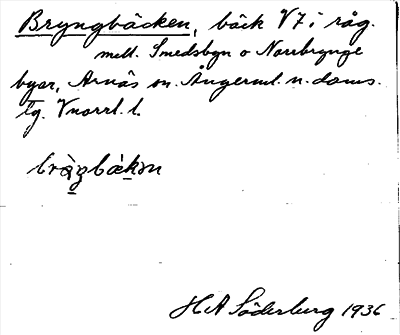 Bryngbäcken, bäck V 7 i råg.
mell. Smedsbyn o Norrbrynge
byar, Arnäs sn. Ångerml. n. doms.
tg. Vnorrl. l.
H A Söderburg 1936